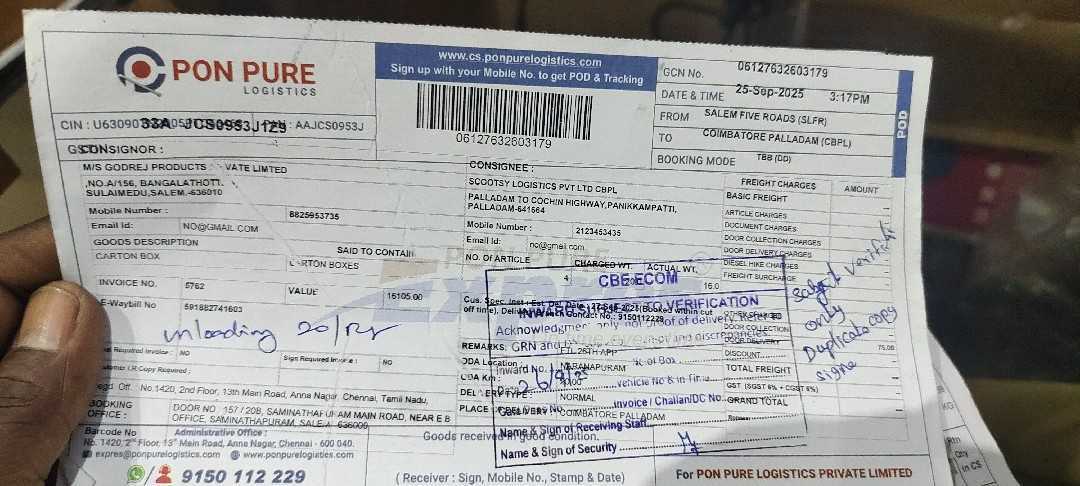 PON PURE
LOGISTICS
www.cs.ponpurelogistics.com
Sign up with your Mobile No. to get POD & Tracking
06127632603179
GCN No. 06127632603179
DATE & TIME 25-Sep-2025 3:17PM
FROM SALEM FIVE ROADS (SLFR)
TO COIMBATORE PALLADAM (CBPL)
BOOKING MODE TBB (DD)
POD
CIN : PAN : AAJCS0953J
33A JCS0953J1Z9
CONSIGNOR :
M/S GODREJ PRODUCTS VATE LIMTED
,NO.A/156, BANGALATHOTT.
SULAIMEDU,SALEM.-636010
Mobile Number : 8825953735
Email Id: NO@GMAIL COM
GOODS DESCRIPTION SAID TO CONTAIN
CARTON BOX CARTON BOXES
INVOICE NO. 5762 VALUE 16105.00
E-Waybill No 591882741603
unloading 20/Rs
CONSIGNEE :
SCOOTSY LOGISTICS PVT LTD CBPL
PALLADAM TO COCHIN HIGHWAY,PANIKKAMPATTI,
PALLADAM-641664
Mobile Number : 2123453435
Email Id: no@gmail.com
NO. OF ARTICLE CHARGED WT. ACTUAL WT.
4 16.0
FREIGHT CHARGES AMOUNT
BASIC FREIGHT
ARTICLE CHARGES
DOCUMENT CHARGES
DOOR COLLECTION CHARGES
DOOR DELIVERY CHARGES
DIESEL HIKE CHARGES
FREIGHT SURCHARGE
DOOR COLLECTION
DOOR DELIVERY 75.00
DISCOUNT
TOTAL FREIGHT
GST (SGST 6% + CGST 6%)
GRAND TOTAL
CBE ECOM
INWARD SUBJECT TO VERIFICATION
Acknowledgment only not proof of delivery. Refer
REMARKS: GRN and discrepancies.
Inward No.
No. of Box
Date 26/9/25
Vehicle No & In Time
Invoice / Challan/DC No.
Name & Sign of Receiving Staff
Name & Sign of Security
ODA Location : MARANAPURAM
ODA Km :
DELIVERY TYPE : NORMAL
PLACE OF DELIVERY : COIMBATORE PALLADAM
Subject verification
only
Duplicate copy
signe
Required Invoice : NO Sign Required Invoice : NO
Regd Off : No.1420, 2nd Floor, 13th Main Road, Anna Nagar, Chennai, Tamil Nadu,
BOOKING OFFICE : DOOR NO :157 / 20B, SAMINATHAPURAM MAIN ROAD, NEAR E B
OFFICE, SAMINATHAPURAM, SALEM 636009
Barcode No Administrative Office :
No. 1420, 2nd Floor, 13th Main Road, Anna Nagar, Chennai - 600 040.
expres@ponpurelogistics.com www.ponpurelogistics.com
9150 112 229
Goods received in good condition.
( Receiver : Sign, Mobile No., Stamp & Date)
For PON PURE LOGISTICS PRIVATE LIMITED